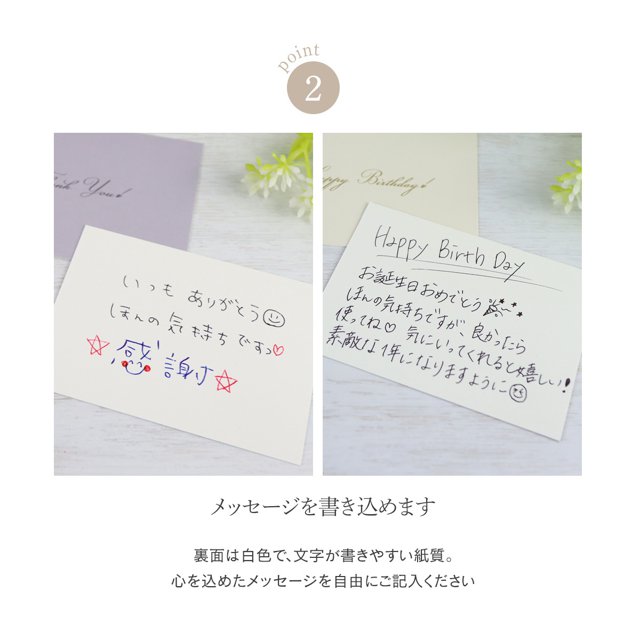 point
2
Thank You!
いつも ありがとう
ほんの 気持ちですっ
感謝
Happy Birthday!
Happy Birth Day
お誕生日おめでとう
ほんの気持ちですが、良かったら
使ってね♡ 気にいってくれると嬉しい!
素敵な1年になりますように
メッセージを書き込めます
裏面は白色で、文字が書きやすい紙質。
心を込めたメッセージを自由にご記入ください